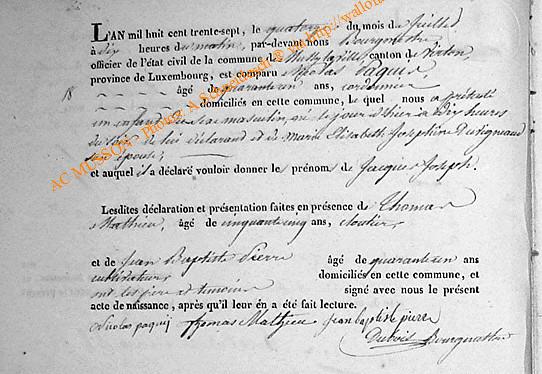 L'AN mil huit cent trente-sept, le quatorze du mois de Juillet
à dix heures du matin, par-devant nous Bourgmestre
officier de l'état civil de la commune de canton de Virton,
province de Luxembourg, est comparu Nicolas Paquis,
18 âgé de quarante un ans, cordonnier
domiciliés en cette commune, Le quel nous a présenté
un enfant du sexe masculin, né le jour d'hier à dix heures
du soir, de lui déclarant et de Marie Elisabeth Josephine
son épouse,
et auquel il a déclaré vouloir donner le prénoms de Jacques Joseph.
Lesdites déclaration et présentation faites en présence de Thomas
Mathieu, âgé de cinquante cinq ans, cloutier,
et de Jean Baptiste Pierre âgé de quarante un ans
cultivateur, domiciliés en cette commune, et
ont les père et témoins signé avec nous le présent
acte de naissance, après qu'il leur en a été fait lecture.
Nicolas paquis thomas Mathieu jean baptiste pierre
Bourguemestre
AC MUSSON - Photos: A.Schmeiduch ® via http://wallo